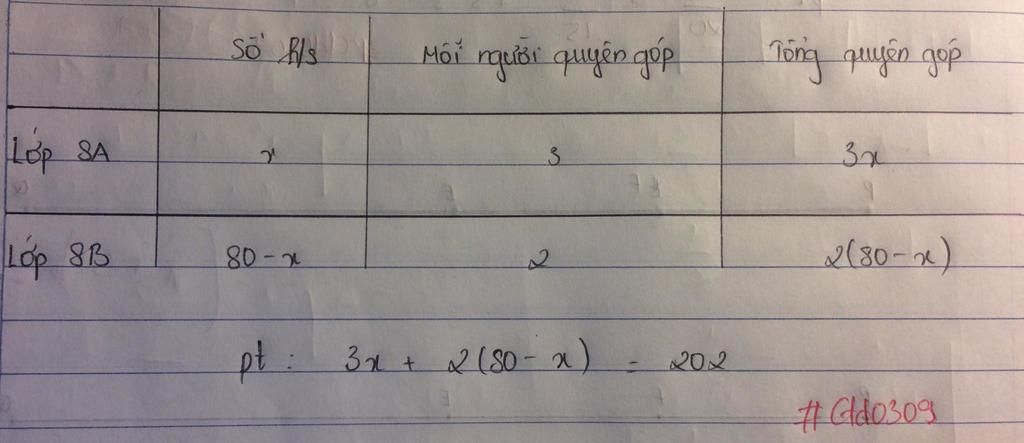 Số h/s Mỗi người quyên góp Tổng quyên góp
Lớp 8A x 3 3x
Lớp 8B 80-x 2 2(80-x)
pt: 3x + 2(80-x) = 202